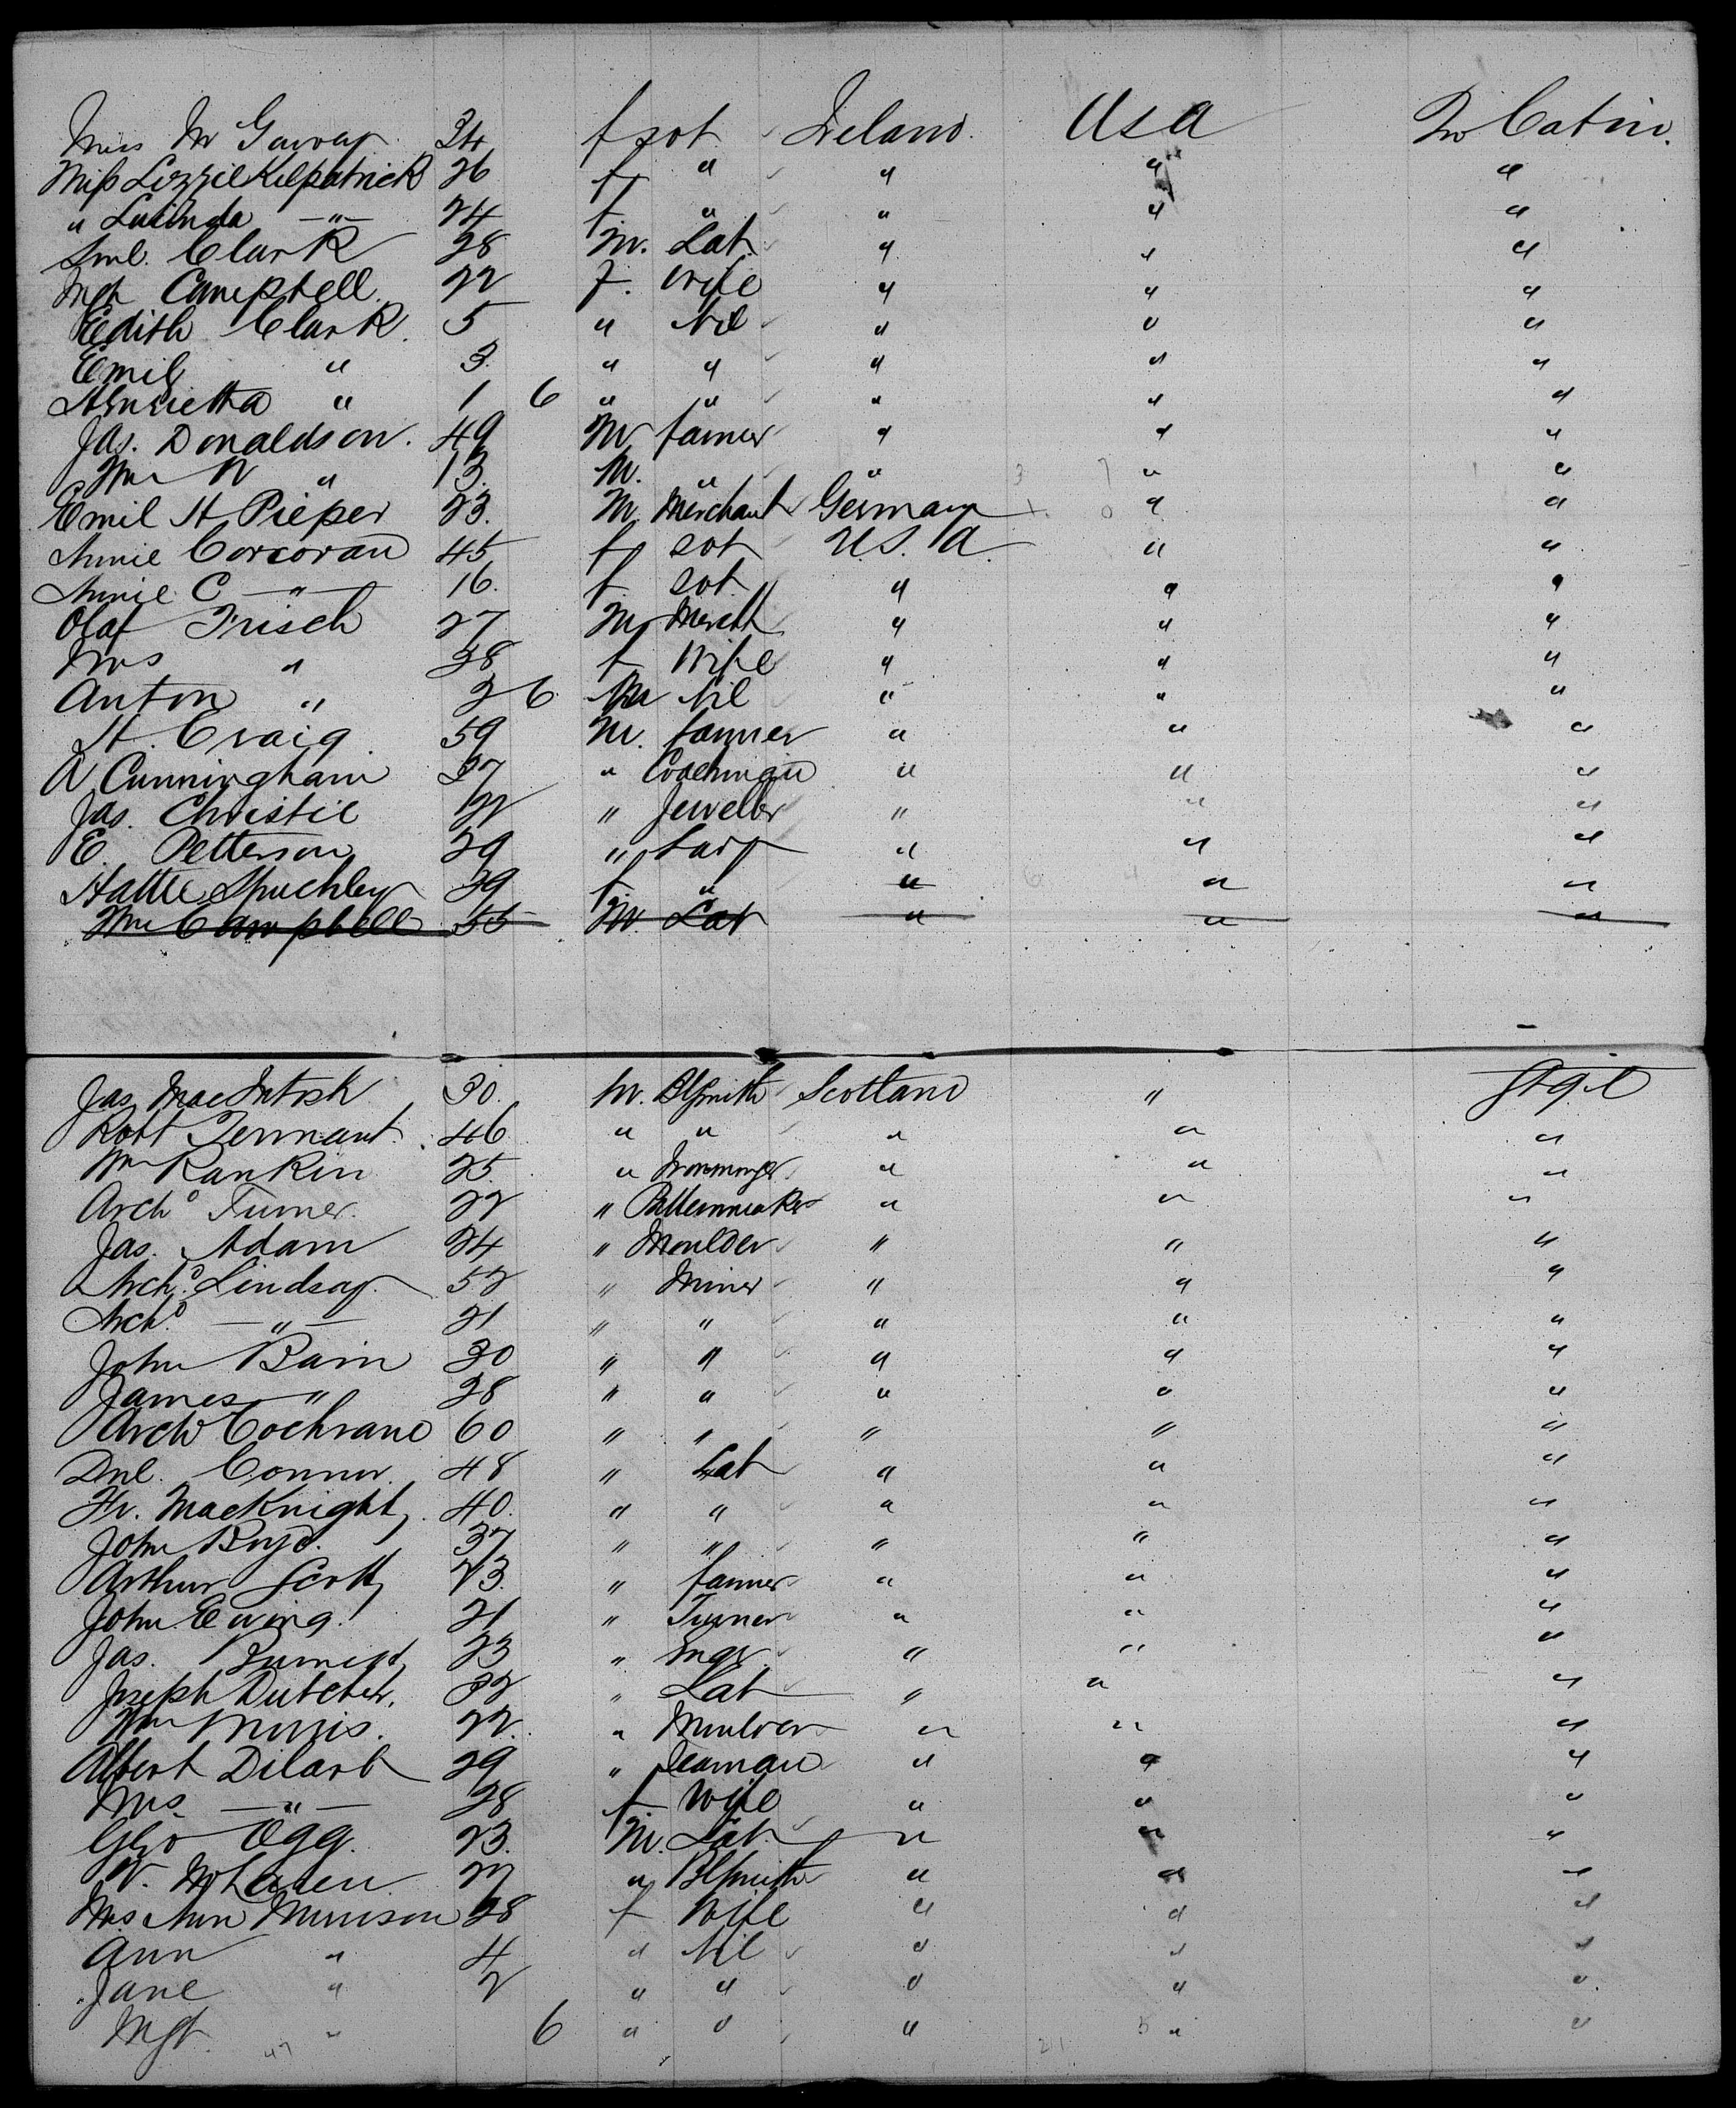 Miss M Garvey 24 f spt Ireland USA 2nd Cabin.
Miss Lizzie Kilpatrick 26 f " " " "
" Lucinda —"— 24 f " " " "
Saml. Clark 28 M. Lab " " "
Mgt Campbell 22 f. Wife " " "
Edith Clark. 5 " Nil " " "
Emily " 3. " " " " "
Henrietta " 1 6 " " " " "
Jas. Donaldson. 49 M farmer " " "
Wm N " 13. M. " " " "
Emil H Pieper 23. M. Merchant Germany " "
Annie Corcoran 45 f spt U.S.A " "
Annie C —"— 16. f spt. " " "
Olaf Frisch 27 M Mercht " " "
Mrs " 28 f Wife " " "
Anton " 2 6 M Nil " " "
H. Craig. 59 M. farmer " " "
A Cunningham 27 " Coachman " " "
Jas. Christie 22 " Jeweller " " "
E. Petterson 29 " " " "
Hattie 29 f. " " " "
Wm Campbell 55 M Lab " " "
Jas. MacIntosh 30. M. Blsmith Scotland " Stge
Robt Tennant. 46 " " " " "
Wm Rankin 25. " Ironmonger " " "
Archd Turner. 22 " Patternmaker " " "
Jas. Adam 24 " Moulder " " "
Archd. Lindsay. 52 " Miner " " "
Archd. —"— 21 " " " " "
John Bain 30 " " " " "
James " 28 " " " " "
Archd Cochrane 60 " " " " "
Dnl. Connor. 48 " Lab " " "
Hr. MacKnight, 40. " " " " "
John Boyd. 37 " " " " "
Arthur Scott, 23. " farmer " " "
John Ewing. 21 " Turner " " "
Jas. 23 " Engr. " " "
Joseph Dutcher. 32 " Lab " " "
Wm 22. " Moulder " " "
Albert 29 " Seaman " " "
Mrs. —"— 28 f. Wife " " "
Geo Ogg. 23. M. Lab. " " "
W. McLaren. 27 " Blsmith " " "
Mrs Ann Munson 28 f Wife " " "
Ann " 4 " Nil " " "
Jane " 2 " " " " "
Mgt. " 6 " " " " "
47 21 5